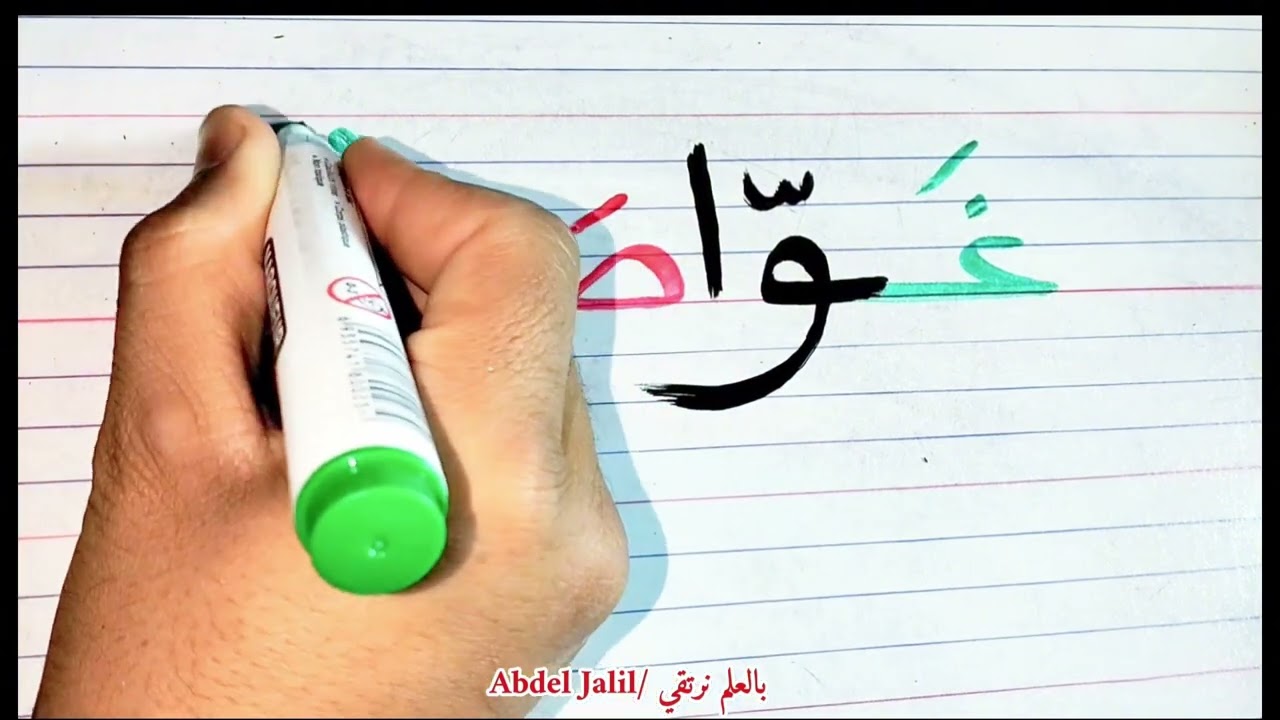 غَوّاصَ
Abdel Jalil/ بالعلم نرتقي